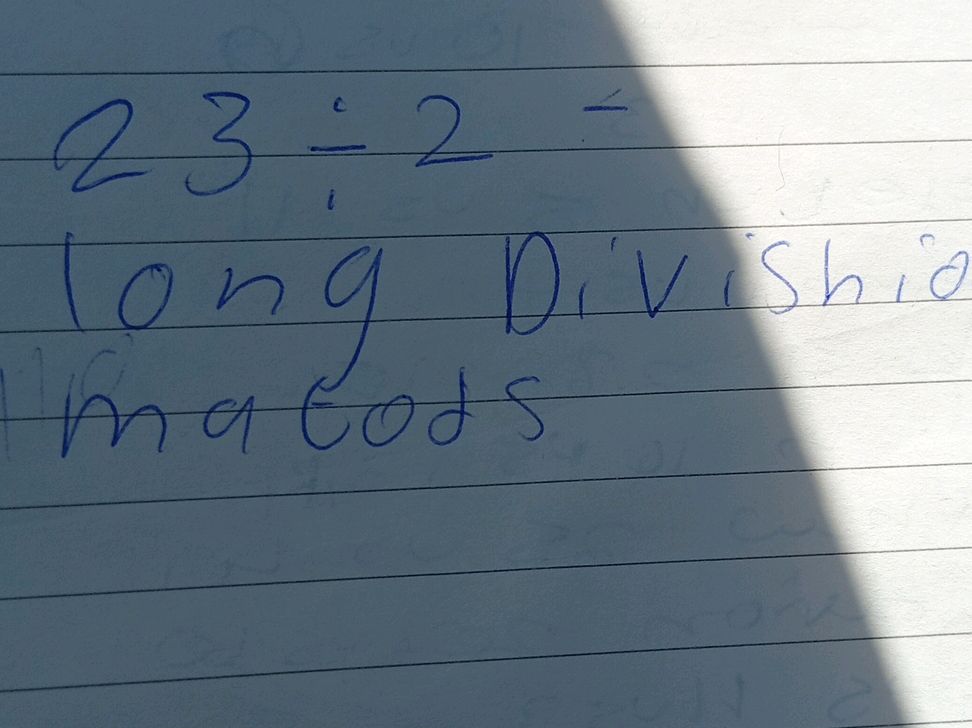 23 ÷ 2 =
long Divishio
matods